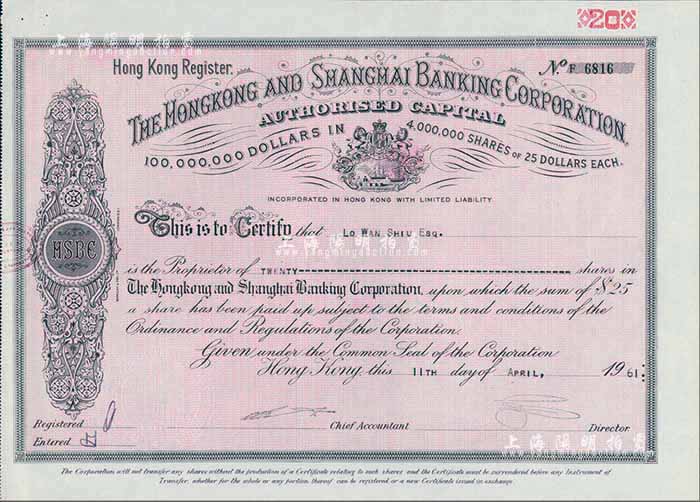 20
上海陽明拍賣
Hong Kong Register.
No. F 6816
THE HONGKONG AND SHANGHAI BANKING CORPORATION.
AUTHORISED CAPITAL
100,000,000 DOLLARS IN 4,000,000 SHARES OF 25 DOLLARS EACH.
INCORPORATED IN HONG KONG WITH LIMITED LIABILITY
This is to Certify that Lo Wan Shiu Esq.
上海陽明拍賣
HSBC
is the Proprietor of TWENTY shares in
The Hongkong and Shanghai Banking Corporation, upon which the sum of $25
a share has been paid up subject to the terms and conditions of the
Ordinance and Regulations of the Corporation.
Given under the Common Seal of the Corporation
Hong Kong, this 11TH day of APRIL, 1961:
Registered
Chief Accountant
Director
Entered
上海陽明拍賣
The Corporation will not transfer any shares without the production of a Certificate relating to such shares and the Certificate must be surrendered before any Instrument of
Transfer, whether for the whole or any portion thereof can be registered or a new Certificate issued in exchange.